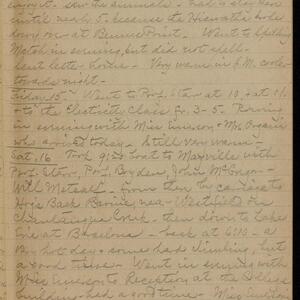 enjoy it. Saw the animals - had to stay down
until nearly 5, because the Hiawatha broke
down over at Bemus Point. Went to Spelling
Match in evening, but did not spell.
Sent letter home. Very warm in P.M. cooler
towards night.
Friday, 15 - Went to Prof. Starr at 10, + at
- to the Electricity Class fr. 3-5. Rowing
in evening with Miss + Mr.
who arrived today. Still very warm -
Sat. 16. Took 9:00 boat to Mayville with
Prof. Starr, Prof. Boyden, John McGregor
Will Metcalf - from then by carriage to
Hogs Back Ravine, near Westfield on
Chautauqua Creek, then down to Lake
Erie at Barcelona - back at 6:10 - a
very hot day + some hard climbing, but
a good time. Went in evening with
Miss to Reception at the
building - had a good time. Miss